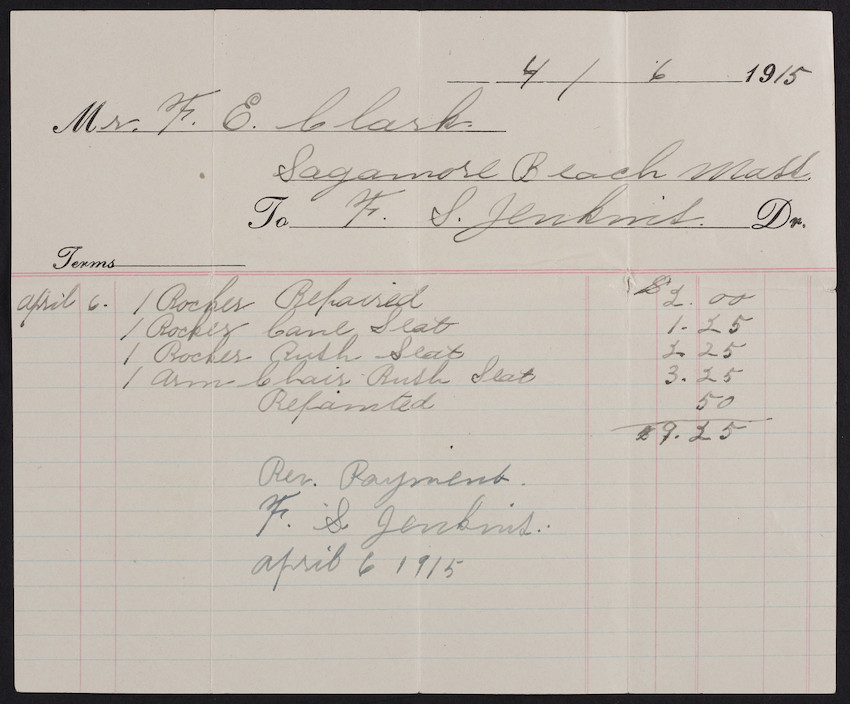 4 / 6 1915
Mr. F. E. Clark.
Sagamore Beach Mass.
To F. S. Jenkins. Dr.
Terms
April 6. 1 Rocker Repaired $2.00
1 Rocker Cane Seat 1.25
1 Rocker Rush Seat 2.25
1 Arm Chair Rush Seat 3.25
Repainted 50
$9.25
Rec. Payment.
F. S. Jenkins.
April 6 1915